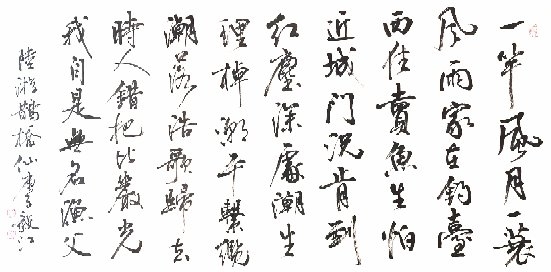 一竿風月一蓑
風雨家在釣臺
西住賣魚生怕
近城門況肯到
紅塵深處潮生
理棹潮平繫纜
潮落浩歌歸去
時人錯把比嚴光
我自是無名漁父
陸游鵲橋仙李